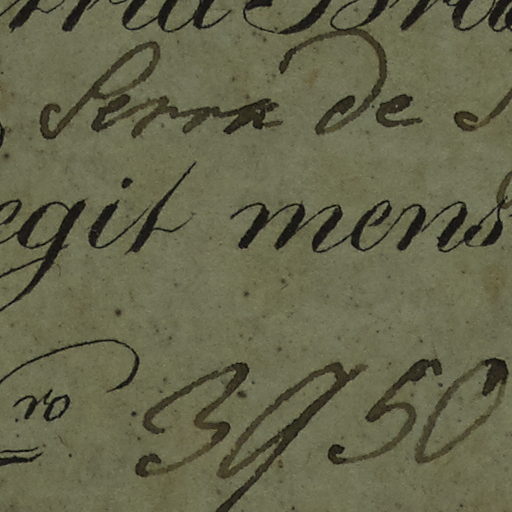 Serra de
egit mens
ro 3950